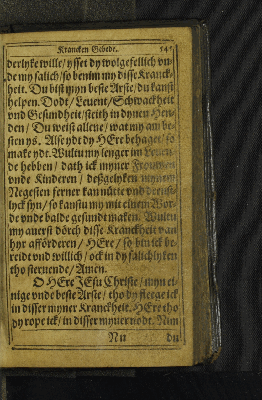 Krancken Gebede. 541
derlyke wille/ ysset dy wolgefellich vn-
de my salich/ so benim my disse Kranck-
heit. Du bist myn beste Arste/ du kanst
helpen. Dodt/ Leuent/ Schwackheit
vnd Gesundheit/ steith in dynen Hen-
den/ Du weist allene/ wat my am be-
sten ys. Alse ydt dy HEre behaget/ so
make ydt. Wultu my lenger im Leuen-
de hebben/ dath ick myner Frouwen
vnde Kinderen/ deßgelyken mynem
Negesten ferner kan nütte vnd
lyck syn/ so kanstu my mit einem Wor-
de vnde balde gesundt maken. Wultu
my auerst dörch disse Kranckheit van
hyr afförderen/ HEre/ so bin ick be-
reidt vnd willich/ ock in dy salichlyken
tho steruende/ Amen.
O HEre JEsu Christe/ myn ei-
nige vnde beste Arste/ tho dy fleege ick
in disser myner Kranckheit. HEre tho
dy rope ick/ in disser myner nodt. Nim
Nu du